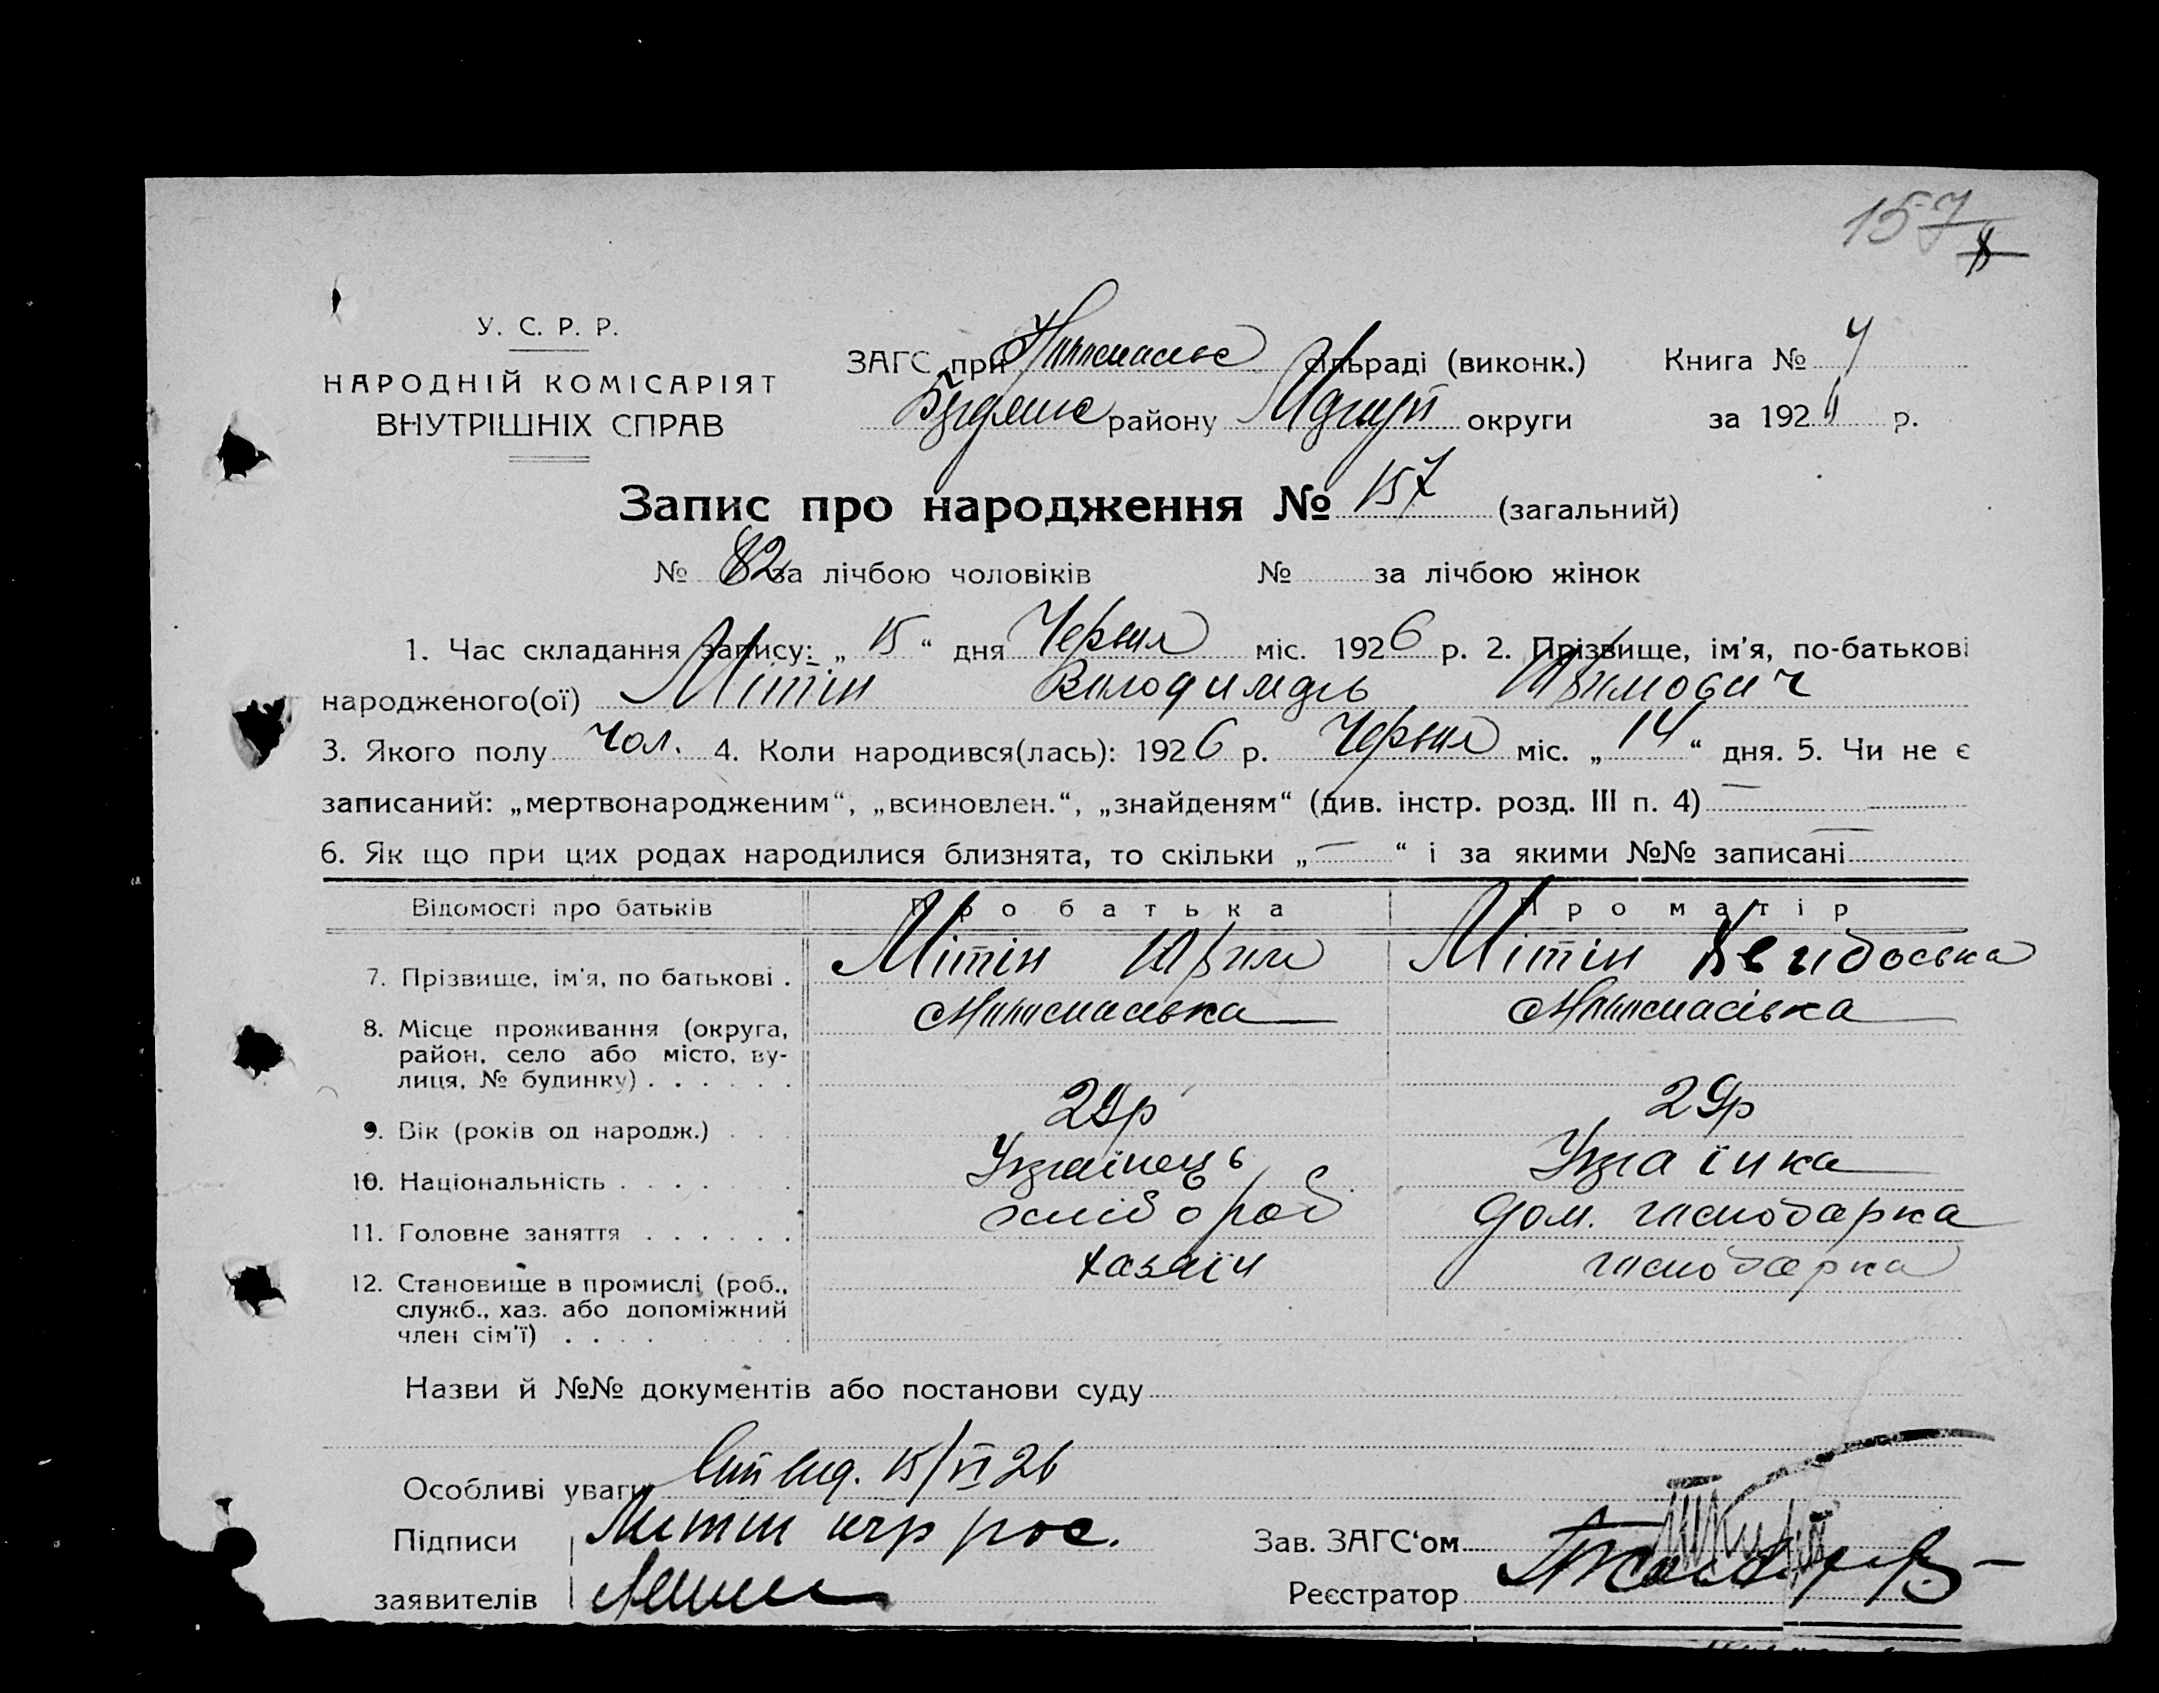 157
У. С. Р. Р.
НАРОДНІЙ КОМІСАРІЯТ
ВНУТРІШНІХ СПРАВ
ЗАГС при сільраді (виконк.) Книга №
району округи за 1926 р.
Запис про народження № 157 (загальний)
№ 82 за лічбою чоловіків № за лічбою жінок
1. Час складання запису: „ 15 “ дня Червня міс. 1926 р. 2. Прізвище, ім'я, по-батькові
народженого(ої) Мітін Володимдь
3. Якого полу чол. 4. Коли народився(лась): 1926 р. Червня міс. „ 14 “ дня. 5. Чи не є
записаний: „мертвонародженим“, „всиновлен.“, „знайденям“ (див. інстр. розд. III п. 4) —
6. Як що при цих родах народилися близнята, то скільки „ — “ і за якими №№ записані —
Відомості про батьків Про батька Про матір
7. Прізвище, ім'я, по батькові . Мітін Мітін
8. Місце проживання (округа,
район, село або місто, ву-
лиця, № будинку) . . . . . .
9. Вік (років од народж.) . . . 29р
10. Національність . . . . . . Українець Українка
11. Головне заняття . . . . . . хлібороб дом. господарка
12. Становище в промислі (роб.,
служб., хаз. або допоміжний
член сім'ї) . . . . хазяїн господарка
Назви й №№ документів або постанови суду
Особливі уваги 15/VI 26
Підписи Митин
заявителів
Зав. ЗАГС'ом
Реєстратор